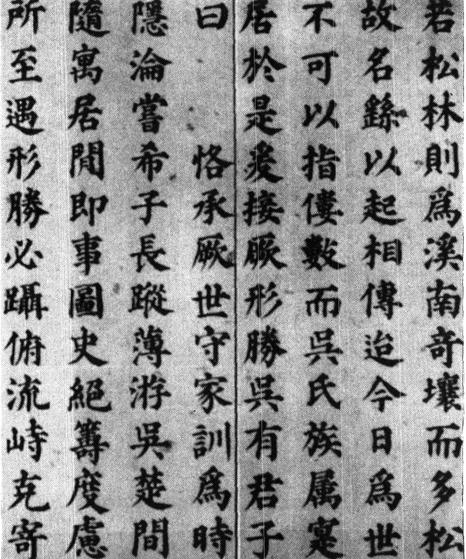 若松林則爲溪南竒壤而多松
故名繇以起相傳迨今日爲世
不可以指僂數而吳氏族属寔
居於是爰接厥形勝吳有君子
曰　恪承厥世守家訓爲時
隱淪嘗希子長蹤薄游吳楚間
隨寓居閒即事圖史絕籌度慮
所至遇形勝必躡俯流峙克寄